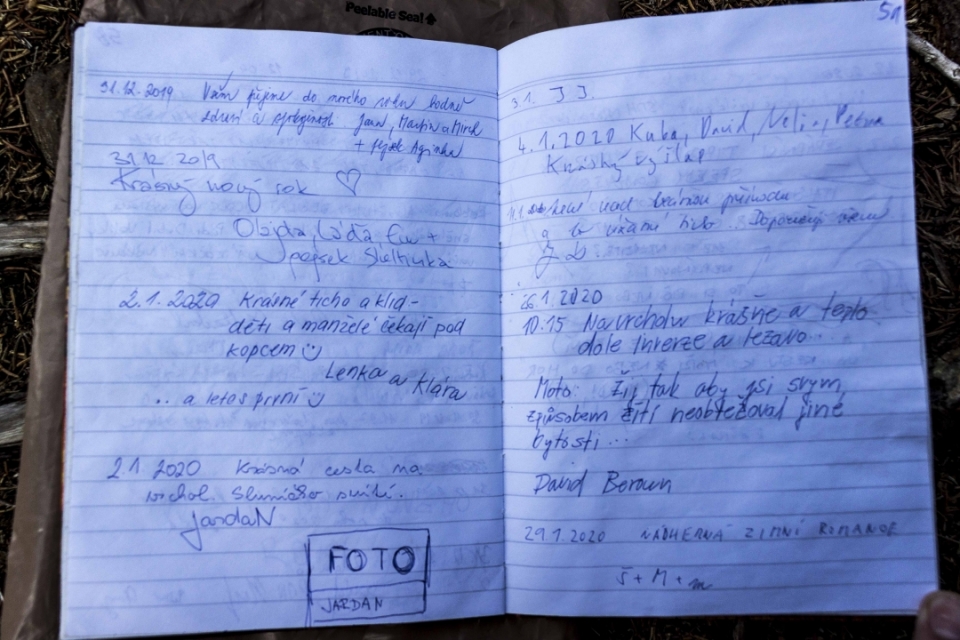 Peelable Seal
31.12.2019 Vám přejeme do nového roku hodně
zdraví a Jana, Martin a Mirek
+ pejsek
31.12 2019
Krásný nový rok ♡
Láďa, Eva +
pejsek
2.1.2020 Krásné ticho a klid -
děti a manželé čekají pod
kopcem ☺
Lenka a Klára
... a letos první ☺
2.1 2020 Krásná cesta na
vrchol. Sluníčko svítí.
JardaN
FOTO
JARDAN
51
3.1. J J.
4.1.2020 Kuba, David, Petra
Krásný výšlap
nad krásnou přírodou
a to
26.1.2020
10:15 Na vrcholu krásně a teplo
dole inverze a ležavo...
Moto: Žij tak aby jsi svým
způsobem žití neobtěžoval jiné
bytosti ...
David Beroun
29.1.2020 NÁDHERNÁ ZIMNÍ ROMANCE
Š + M + m